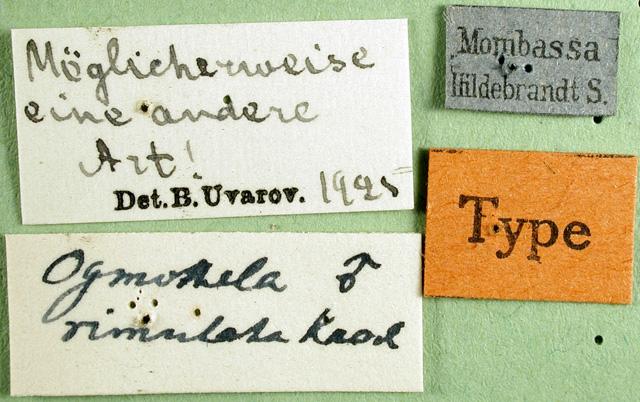 Möglicherweise
eine andere
Art!
Det. B. Uvarov. 1925
Mombassa
Hildebrandt S.
Type
Ogmothela ♂
rimulata Karsch